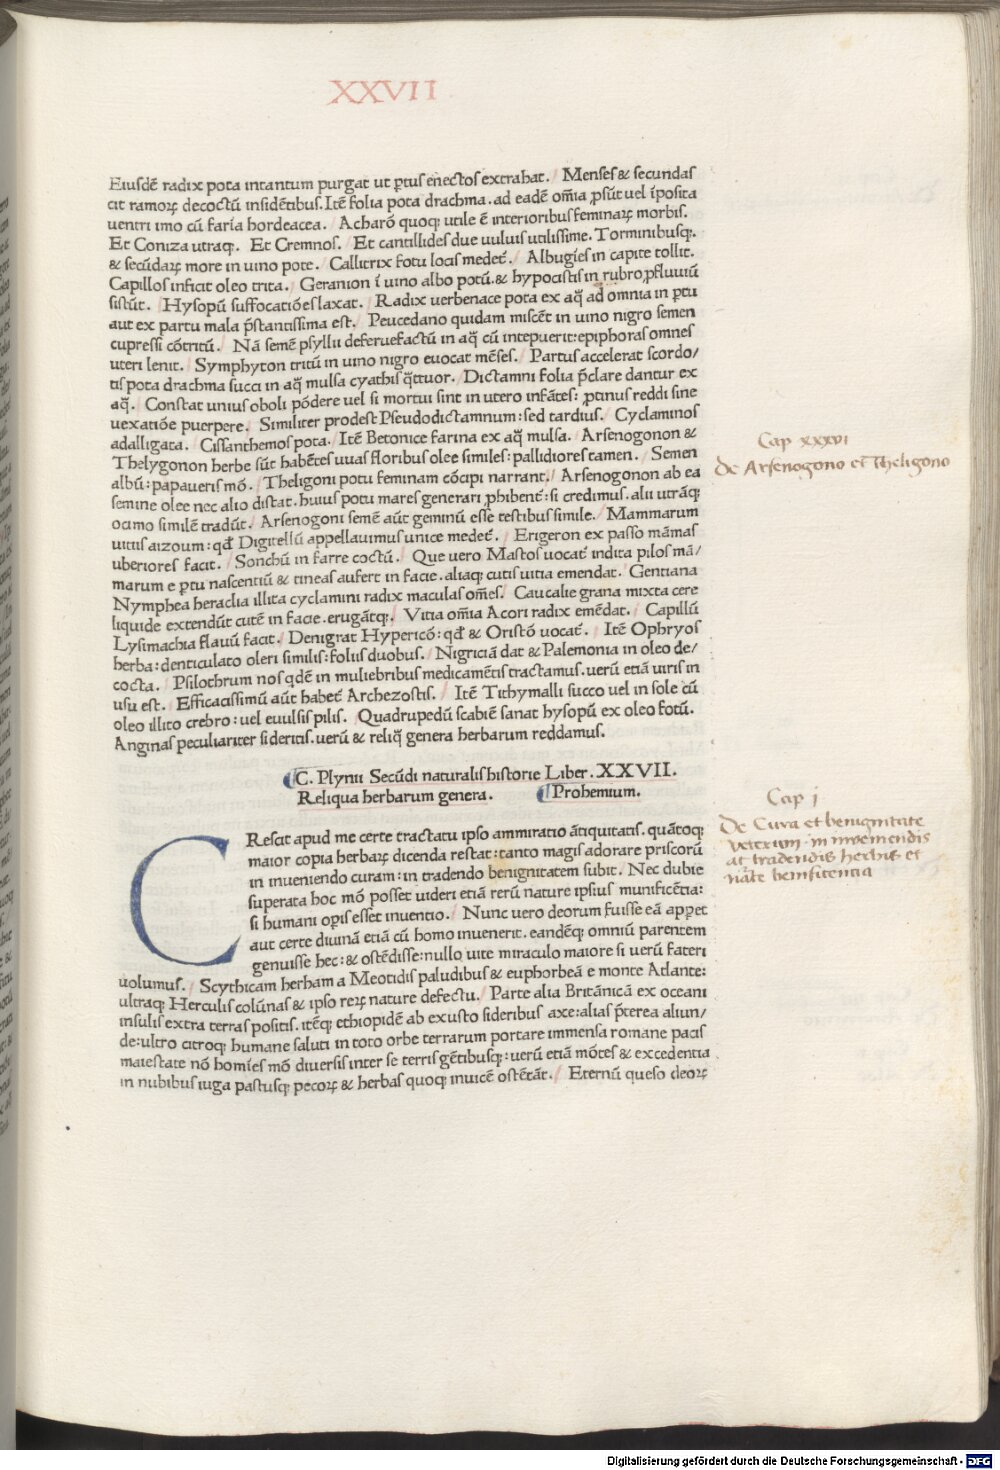 XXVII
Eiusdē radix pota intantum purgat ut ꝑtus enectos extrahat. / Menses & secundas
cit ramoꝝ decoctū insidētibus. Itē folia pota drachma. ad eadē om̄ia ꝓsūt uel īposita
uentri imo cū farīa hordeacea. / Acharō quoqꝫ utile ē interioribus feminaꝝ morbis.
Et Coniza utraqꝫ. Et Cremnos. / Et cantillides due uuluis utilissime. Torminibusqꝫ.
& secūdaꝝ more in uino pote. / Callitrix fotu locis medet᷑. / Albugīes in capite tollit.
Capillos inficit oleo trita. / Geranion ī uino albo potū. & hypocistis in rubro ꝓfluuiū
sistūt. / Hysopū suffocatiōes laxat. / Radix uerbenace pota ex aq̄ ad omnia in ꝑtu
aut ex partu mala p̄stantissima est. / Peucedano quidam miscēt in uino nigro semen
cupressi cōtritū. / Nā semē psyllii deferuefactū in aq̄ cū intepuerit: epiphoras omnes
uteri lenit. / Symphyton tritū in uino nigro euocat mēses. / Partus accelerat scordo/
tis pota drachma succi in aq̄ mulsa cyathis q̄ttuor. / Dictamni folia p̄clare dantur ex
aq̄. / Constat unius oboli pōdere uel si mortui sint in utero infātes: ꝓtinus reddi sine
uexatiōe puerpere. / Similiter prodest Pseudodictamnum: sed tardius. / Cyclaminos
adalligata. / Cissanthemos pota. / Itē Betonice farina ex aq̄ mulsa. / Arsenogonon &
Thelygonon herbe sūt habētes uuas floribus olee similes: pallidiores tamen. / Semen
albū: papaueris mō. / Theligoni potu feminam cōcipi narrant. / Arsenogonon ab ea
semine olee nec alio distat. huius potu mares generari ꝓhibent᷑: si credimus. alii utrāqꝫ
ocimo similē tradūt. / Arsenogoni semē aūt geminū esse testibus simile. / Mammarum
uitiis aizoum: qđ Digitellū appellauimus unice medet᷑. / Erigeron ex passo māmas
uberiores facit. / Sonchū in farre coctū. / Que uero Mastos uocat᷑ indita pilos mā/
marum e ꝑtu nascentiū & tineas aufert in facie. aliaqꝫ cutis uitia emendat. Gentiana
Nymphea heraclia illita cyclamini radix maculas om̄es. / Caucalie grana mixta cere
liquide extendūt cutē in facie. erugātqꝫ. / Vitia om̄ia Acori radix emēdat. / Capillū
Lysimachia flauū facit. / Denigrat Hypericō: qđ & Oristō uocat᷑. / Itē Ophryos
herba: denticulato oleri similis: foliis duobus. / Nigriciā dat & Palemonia in oleo de/
cocta. / Psilothrum nos qdē in muliebribus medicamētis tractamus. uerū etiā uiris in
usu est. / Efficacissimū aūt habet᷑ Archezostis. / Itē Tithymalli succo uel in sole cū
oleo illito crebro: uel euulsis pilis. / Quadrupedū scabiē sanat hysopū ex oleo fotū.
Anginas peculiariter sideritis. uerū & reliq̄ genera herbarum reddamus.
Cap xxxvi
de Arsenogono et Theligono
C. Plynii Secūdi naturalis historie Liber. XXVII.
Reliqua herbarum genera. Prohemium.
CRescit apud me certe tractatu ipso ammiratio ātiquitatis. quātoqꝫ
maior copia herbaꝝ dicenda restat: tanto magis adorare priscorū
in inueniendo curam: in tradendo benignitatem subit. Nec dubie
superata hoc mō posset uideri etiā rerū nature ipsius munificētia:
si humani oꝑis esset inuentio. / Nunc uero deorum fuisse eā apꝑet
aut certe diuinā etiā cū homo inuenerit. eandēqꝫ omniū parentem
genuisse hec: & ostēdisse: nullo uite miraculo maiore si uerū fateri
uolumus. / Scythicam herbam a Meotidis paludibus & euphorbeā e monte Atlante:
ultraqꝫ Herculis colūnas & ipso reꝝ nature defectu. / Parte alia Britānicā ex oceani
insulis extra terras positis. itēqꝫ ethiopidē ab exusto sideribus axe: alias p̄terea aliun/
de: ultro citroqꝫ humane saluti in toto orbe terrarum portare immensa romane pacis
maiestate nō homīes mō diuersis inter se terris gētibusqꝫ: uerū etiā mōtes & excedentia
in nubibus iuga partusqꝫ pecoꝝ & herbas quoqꝫ inuicē ostētāt. / Eternū queso deoꝝ
Cap j
De Cura et benignitate
veterum in inveniendis
at tradendis herbis et
nāte benificentia
Digitalisierung gefördert durch die Deutsche Forschungsgemeinschaft - DFG